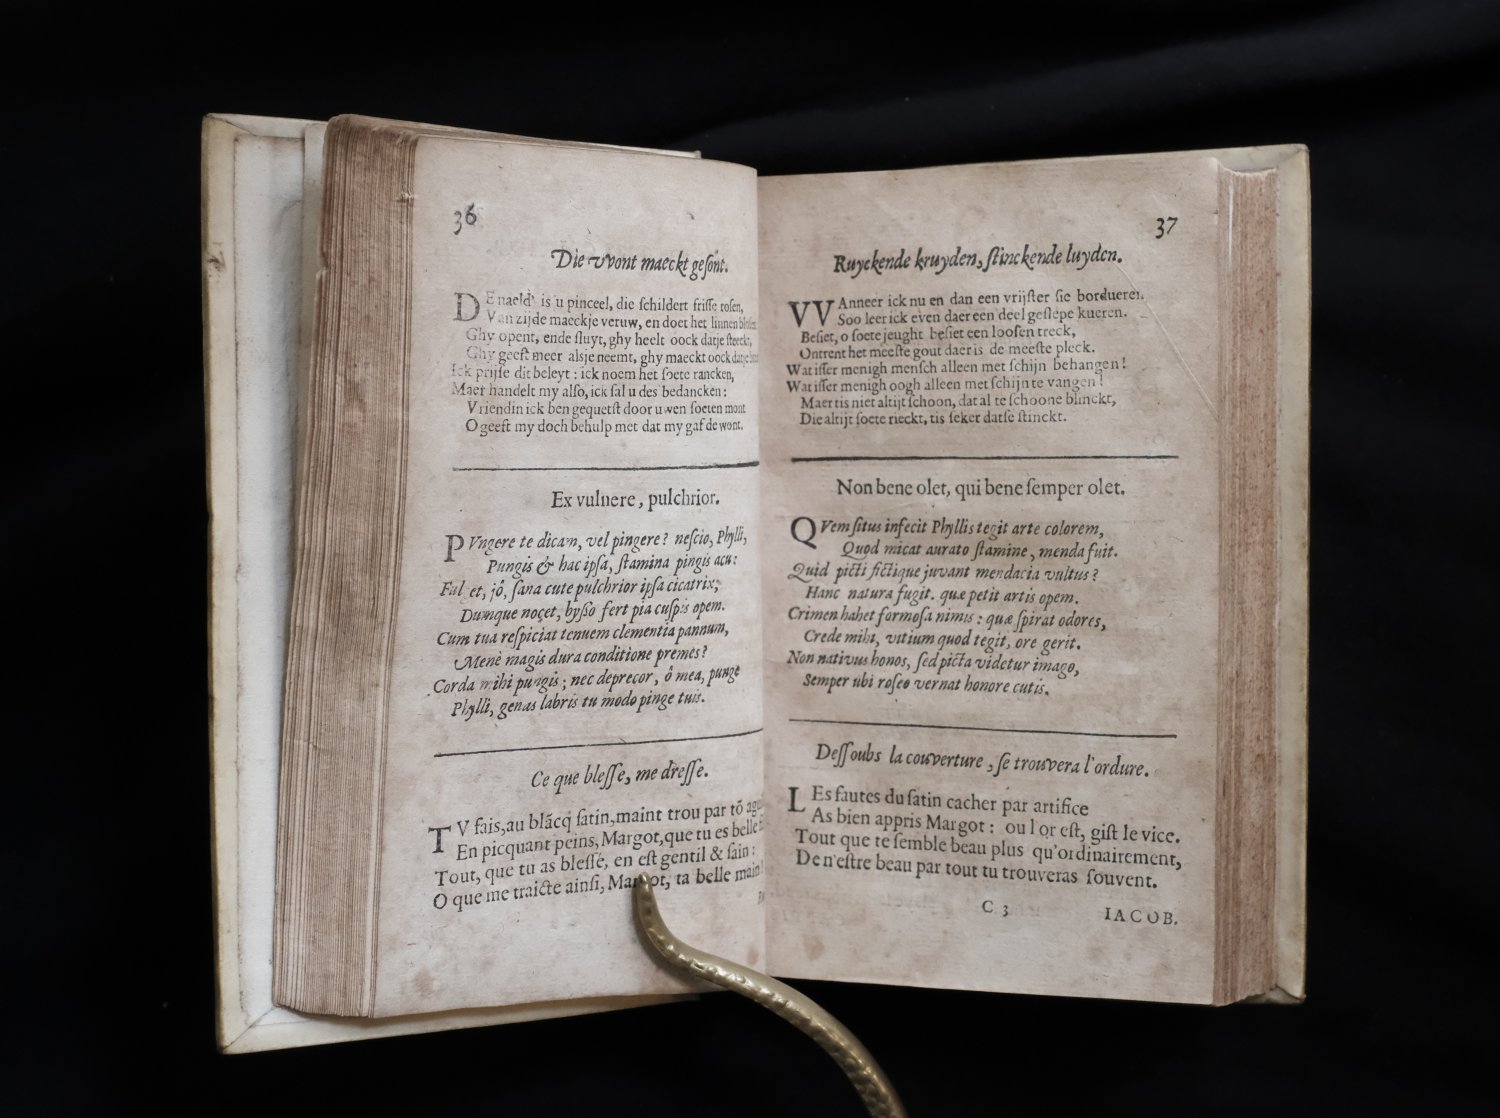 36
Die vvont maeckt gesont.
DE naeld' is u pinceel, die schildert frisse rosen,
Van zijde maeckje veruw, en doet het linnen
Ghy opent, ende sluyt, ghy heelt oock datje steeckt,
Ghy geeft meer alsje neemt, ghy maeckt oock datje
Ick prijse dit beleyt: ick noem het soete rancken,
Maer handelt my also, ick sal u des bedancken:
Vriendin ick ben gequetst door uwen soeten mont
O geeft my doch behulp met dat my gaf de wont.
Ex vulnere, pulchrior.
PUngere te dicam, vel pingere? nescio, Phylli,
Pungis & hac ipsa, stamina pingis acu:
et, jô, sana cute pulchrior ipsa cicatrix;
Dumque noçet, bysso fert pia cuspis opem.
Cum tua respiciat tenuem clementia pannum,
Menè magis dura conditione premes?
Corda mihi pungis; nec deprecor, ô mea, punge
Phylli, genas labris tu modo pinge tuis.
Ce que blesse, me dresse.
TV fais, au blãcq satin, maint trou par tõ
En picquant peins, Margot, que tu es belle
Tout, que tu as blessé, en est gentil & sain:
O que me traicte ainsi, Margot, ta belle main
37
Ruyckende kruyden, stinckende luyden.
VVAnneer ick nu en dan een vrijster sie bordueren
Soo leer ick even daer een deel geslepe kueren.
Besiet, o soete jeught besiet een loosen treck,
Ontrent het meeste gout daer is de meeste pleck.
Wat isser menigh mensch alleen met schijn behangen!
Wat isser menigh oogh alleen met schijn te vangen!
Maer tis niet altijt schoon, dat al te schoone blinckt,
Die altijt soete rieckt, tis seker datse stinckt.
Non bene olet, qui bene semper olet.
QVem situs infecit Phyllis tegit arte colorem,
Quod micat aurato stamine, menda fuit.
Quid picti fictique juvant mendacia vultus?
Hanc natura fugit. quæ petit artis opem.
Crimen habet formosa nimis: quæ spirat odores,
Crede mihi, vitium quod tegit, ore gerit.
Non nativus honos, sed picta videtur imago,
Semper ubi roseo vernat honore cutis.
Dessoubs la couverture, se trouvera l'ordure.
LEs fautes du satin cacher par artifice
As bien appris Margot: ou l'or est, gist le vice.
Tout que te semble beau plus qu'ordinairement,
De n'estre beau par tout tu trouveras souvent.
C 3
IACOB.